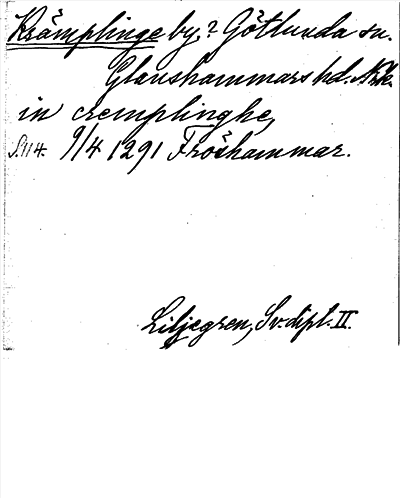 Krämplinge by? Götlunda sn.
Glanshammars hd. Nke.
in cremplinghe,
S. 114. 9/4 1291 Fröshammar.
Liljegren, Sv. dipl. II.